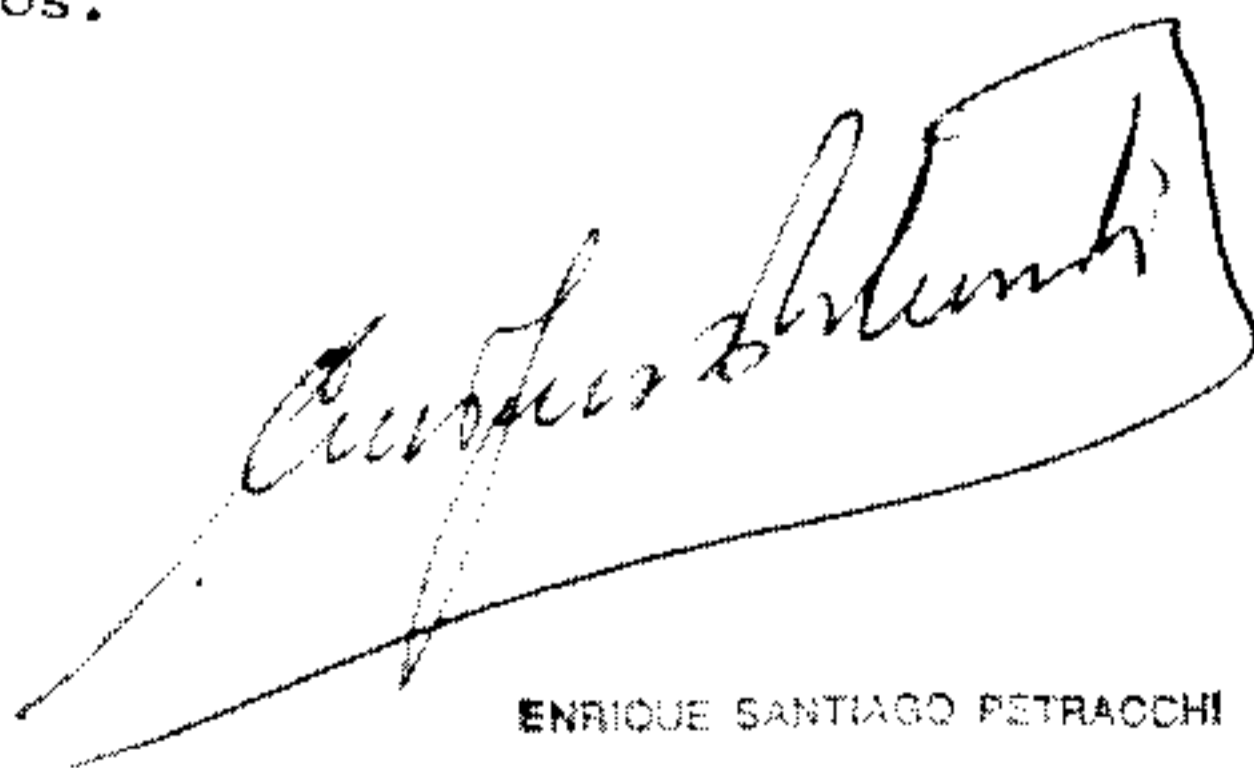 os.
ENRIQUE SANTIAGO PETRACCHI